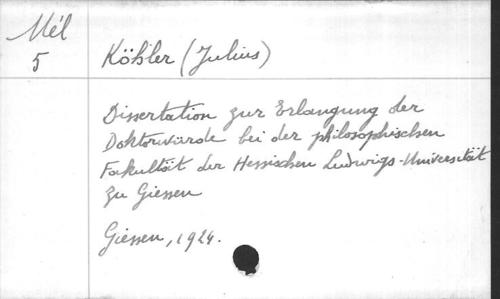 Mél
5
Köhler (Julius)
Dissertation zur Erlangung der
Doktorwürde bei der philosophischen
Fakultät der Hessischen Ludwigs-Universität
zu Giessen
Giessen, 1924.